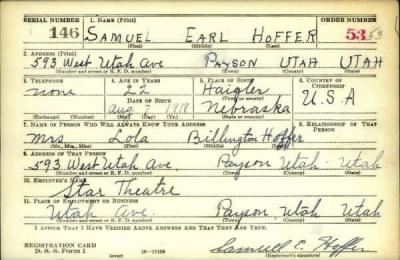 SERIAL NUMBER 1. NAME (Print) ORDER NUMBER
146 SAMUEL EARL HOFFER 5353
(First) (Middle) (Last)
2. ADDRESS (Print)
593 West Utah Ave PAYSON UTAH UTAH
(Number and street or R. F. D. number) (Town) (County) (State)
3. TELEPHONE 4. AGE IN YEARS 5. PLACE OF BIRTH 6. COUNTRY OF CITIZENSHIP
none 22 Haigler
DATE OF BIRTH (Town or county)
Aug 7 1918 Nebraska U.S.A
(Exchange) (Number) (Mo.) (Day) (Yr.) (State or country)
7. NAME OF PERSON WHO WILL ALWAYS KNOW YOUR ADDRESS 8. RELATIONSHIP OF THAT PERSON
Mrs Lola Billington Hoffer
(Mr., Mrs., Miss) (First) (Middle) (Last)
9. ADDRESS OF THAT PERSON
593 West Utah Ave. Payson Utah Utah
(Number and street or R. F. D. number) (Town) (County) (State)
10. EMPLOYER'S NAME
Star Theatre
11. PLACE OF EMPLOYMENT OR BUSINESS
Utah Ave. Payson, Utah Utah
(Number and street or R. F. D. number) (Town) (County) (State)
I AFFIRM THAT I HAVE VERIFIED ABOVE ANSWERS AND THAT THEY ARE TRUE.
REGISTRATION CARD
D. S. S. Form 1 Samuel E. Hoffer
(Registrant's signature)